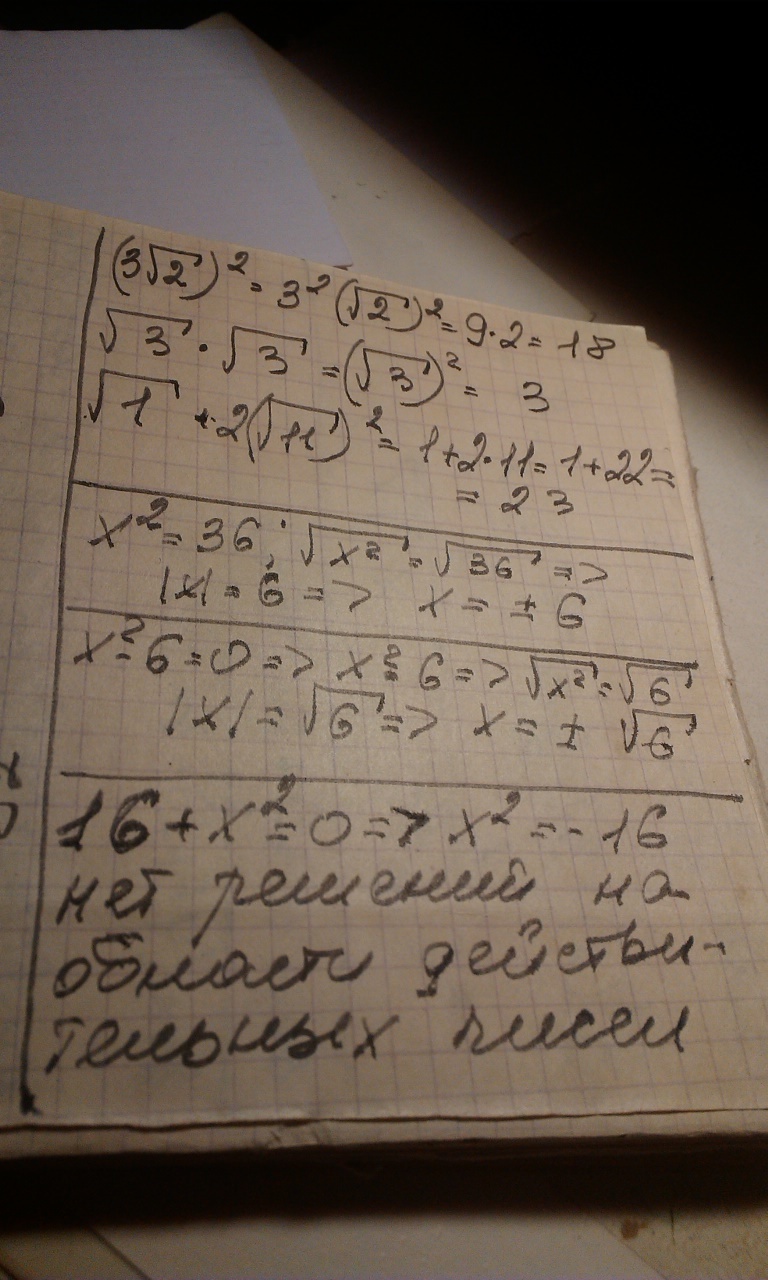 (3√2)² = 3²(√2)² = 9·2 = 18
√3 · √3 = (√3)² = 3
√1 + 2(√11)² = 1+2·11 = 1+22 =
= 23
x² = 36; √x² = √36 =>
|x| = 6 => x = ± 6
x²-6=0 => x²=6 => √x² = √6
|x| = √6 => x = ± √6
16 + x² = 0 => x² = -16
нет решений на
области действи-
тельных чисел